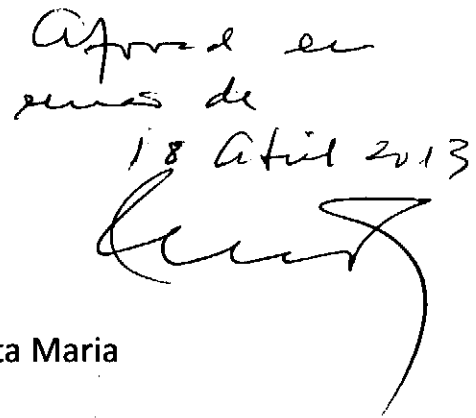 Aprovad em
reunião de
18 Abril 2013
ta Maria